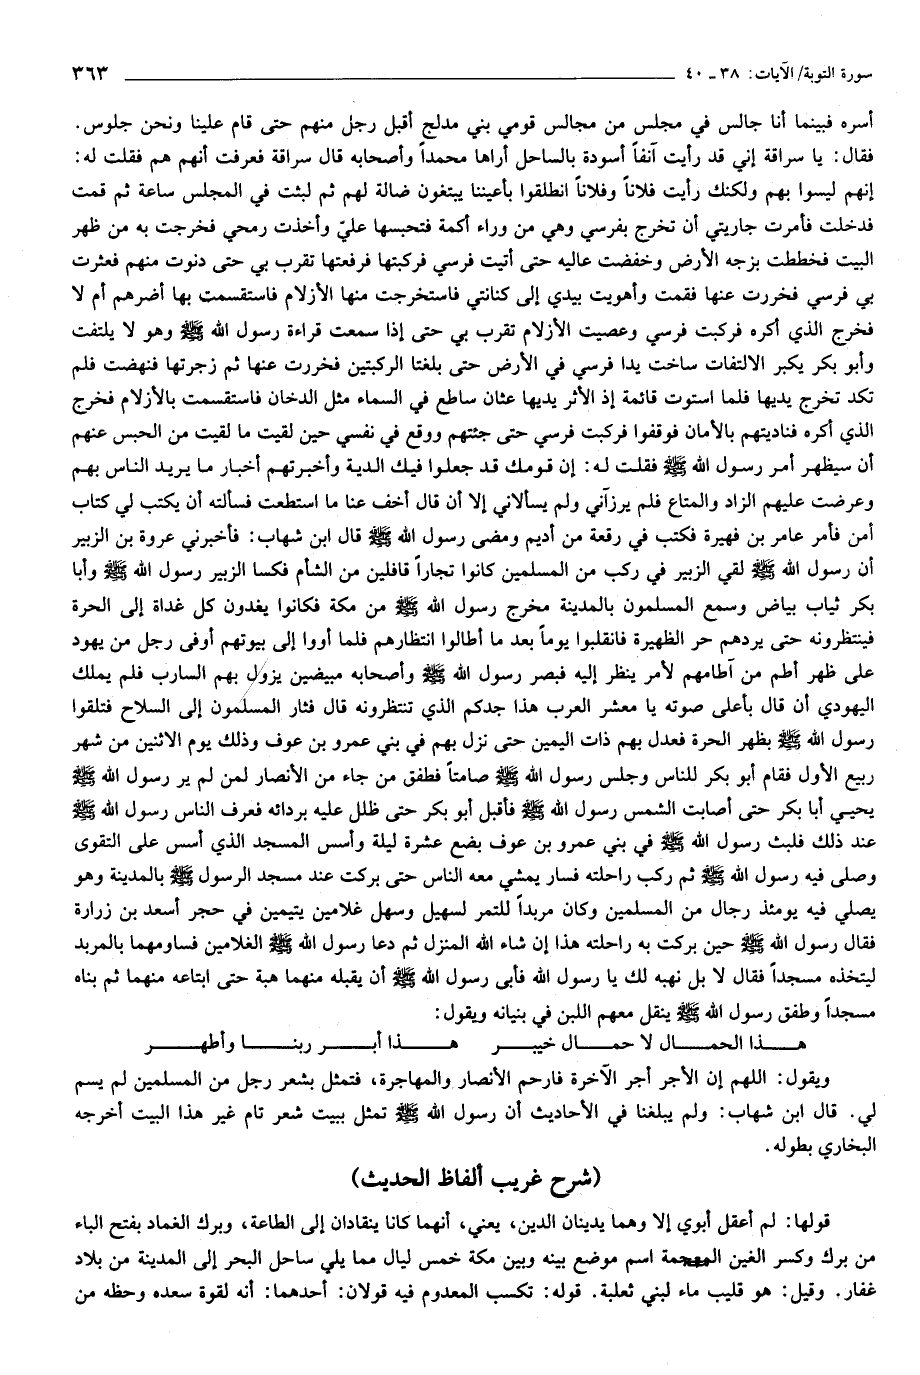 سورة التوبة/ الآيات: ٣٨ ـ ٤٠ ٣٦٣
أسره فبينما أنا جالس في مجلس من مجالس قومي بني مدلج أقبل رجل منهم حتى قام علينا ونحن جلوس.
فقال: يا سراقة إني قد رأيت آنفاً أسودة بالساحل أراها محمداً وأصحابه قال سراقة فعرفت أنهم هم فقلت له:
إنهم ليسوا بهم ولكنك رأيت فلاناً وفلاناً انطلقوا بأعيننا يبتغون ضالة لهم ثم لبثت في المجلس ساعة ثم قمت
فدخلت فأمرت جاريتي أن تخرج بفرسي وهي من وراء أكمة فتحبسها عليّ وأخذت رمحي فخرجت به من ظهر
البيت فخططت بزجه الأرض وخفضت عاليه حتى أتيت فرسي فركبتها فرفعتها تقرب بي حتى دنوت منهم فعثرت
بي فرسي فخررت عنها فقمت وأهويت بيدي إلى كنانتي فاستخرجت منها الأزلام فاستقسمت بها أضرهم أم لا
فخرج الذي أكره فركبت فرسي وعصيت الأزلام تقرب بي حتى إذا سمعت قراءة رسول الله ﷺ وهو لا يلتفت
وأبو بكر يكبر الالتفات ساخت يدا فرسي في الأرض حتى بلغتا الركبتين فخررت عنها ثم زجرتها فنهضت فلم
تكد تخرج يديها فلما استوت قائمة إذ الأثر يديها عثان ساطع في السماء مثل الدخان فاستقسمت بالأزلام فخرج
الذي أكره فناديتهم بالأمان فوقفوا فركبت فرسي حتى جئتهم ووقع في نفسي حين لقيت ما لقيت من الحبس عنهم
أن سيظهر أمر رسول الله ﷺ فقلت له: إن قومك قد جعلوا فيك الدية وأخبرتهم أخبار ما يريد الناس بهم
وعرضت عليهم الزاد والمتاع فلم يرزآني ولم يسألاني إلا أن قال أخف عنا ما استطعت فسألته أن يكتب لي كتاب
أمن فأمر عامر بن فهيرة فكتب في رقعة من أديم ومضى رسول الله ﷺ قال ابن شهاب: فأخبرني عروة بن الزبير
أن رسول الله ﷺ لقي الزبير في ركب من المسلمين كانوا تجاراً قافلين من الشأم فكسا الزبير رسول الله ﷺ وأبا
بكر ثياب بياض وسمع المسلمون بالمدينة مخرج رسول الله ﷺ من مكة فكانوا يغدون كل غداة إلى الحرة
فينتظرونه حتى يردهم حر الظهيرة فانقلبوا يوماً بعد ما أطالوا انتظارهم فلما أووا إلى بيوتهم أوفى رجل من يهود
على ظهر أطم من آطامهم لأمر ينظر إليه فبصر رسول الله ﷺ وأصحابه مبيضين يزول بهم السارب فلم يملك
اليهودي أن قال بأعلى صوته يا معشر العرب هذا جدكم الذي تنتظرونه قال فثار المسلمون إلى السلاح فتلقوا
رسول الله ﷺ بظهر الحرة فعدل بهم ذات اليمين حتى نزل بهم في بني عمرو بن عوف وذلك يوم الاثنين من شهر
ربيع الأول فقام أبو بكر للناس وجلس رسول الله ﷺ صامتاً فطفق من جاء من الأنصار لمن لم ير رسول الله ﷺ
يحيي أبا بكر حتى أصابت الشمس رسول الله ﷺ فأقبل أبو بكر حتى ظلل عليه بردائه فعرف الناس رسول الله ﷺ
عند ذلك فلبث رسول الله ﷺ في بني عمرو بن عوف بضع عشرة ليلة وأسس المسجد الذي أسس على التقوى
وصلى فيه رسول الله ﷺ ثم ركب راحلته فسار يمشي معه الناس حتى بركت عند مسجد الرسول ﷺ بالمدينة وهو
يصلي فيه يومئذ رجال من المسلمين وكان مربداً للتمر لسهيل وسهل غلامين يتيمين في حجر أسعد بن زرارة
فقال رسول الله ﷺ حين بركت به راحلته هذا إن شاء الله المنزل ثم دعا رسول الله ﷺ الغلامين فساومهما بالمربد
ليتخذه مسجداً فقال لا بل نهبه لك يا رسول الله فأبى رسول الله ﷺ أن يقبله منهما هبة حتى ابتاعه منهما ثم بناه
مسجداً وطفق رسول الله ﷺ ينقل معهم اللبن في بنيانه ويقول:
هـذا الحمـال لا حمـال خيبـر هـذا أبـر ربنـا وأطهـر
ويقول: اللهم إن الأجر أجر الآخرة فارحم الأنصار والمهاجرة، فتمثل بشعر رجل من المسلمين لم يسم
لي. قال ابن شهاب: ولم يبلغنا في الأحاديث أن رسول الله ﷺ تمثل ببيت شعر تام غير هذا البيت أخرجه
البخاري بطوله.
(شرح غريب ألفاظ الحديث)
قولها: لم أعقل أبوي إلا وهما يدينان الدين، يعني، أنهما كانا ينقادان إلى الطاعة، وبرك الغماد بفتح الباء
من برك وكسر الغين المعجمة اسم موضع بينه وبين مكة خمس ليال مما يلي ساحل البحر إلى المدينة من بلاد
غفار. وقيل: هو قليب ماء لبني ثعلبة. قوله: تكسب المعدوم فيه قولان: أحدهما: أنه لقوة سعده وحظه من